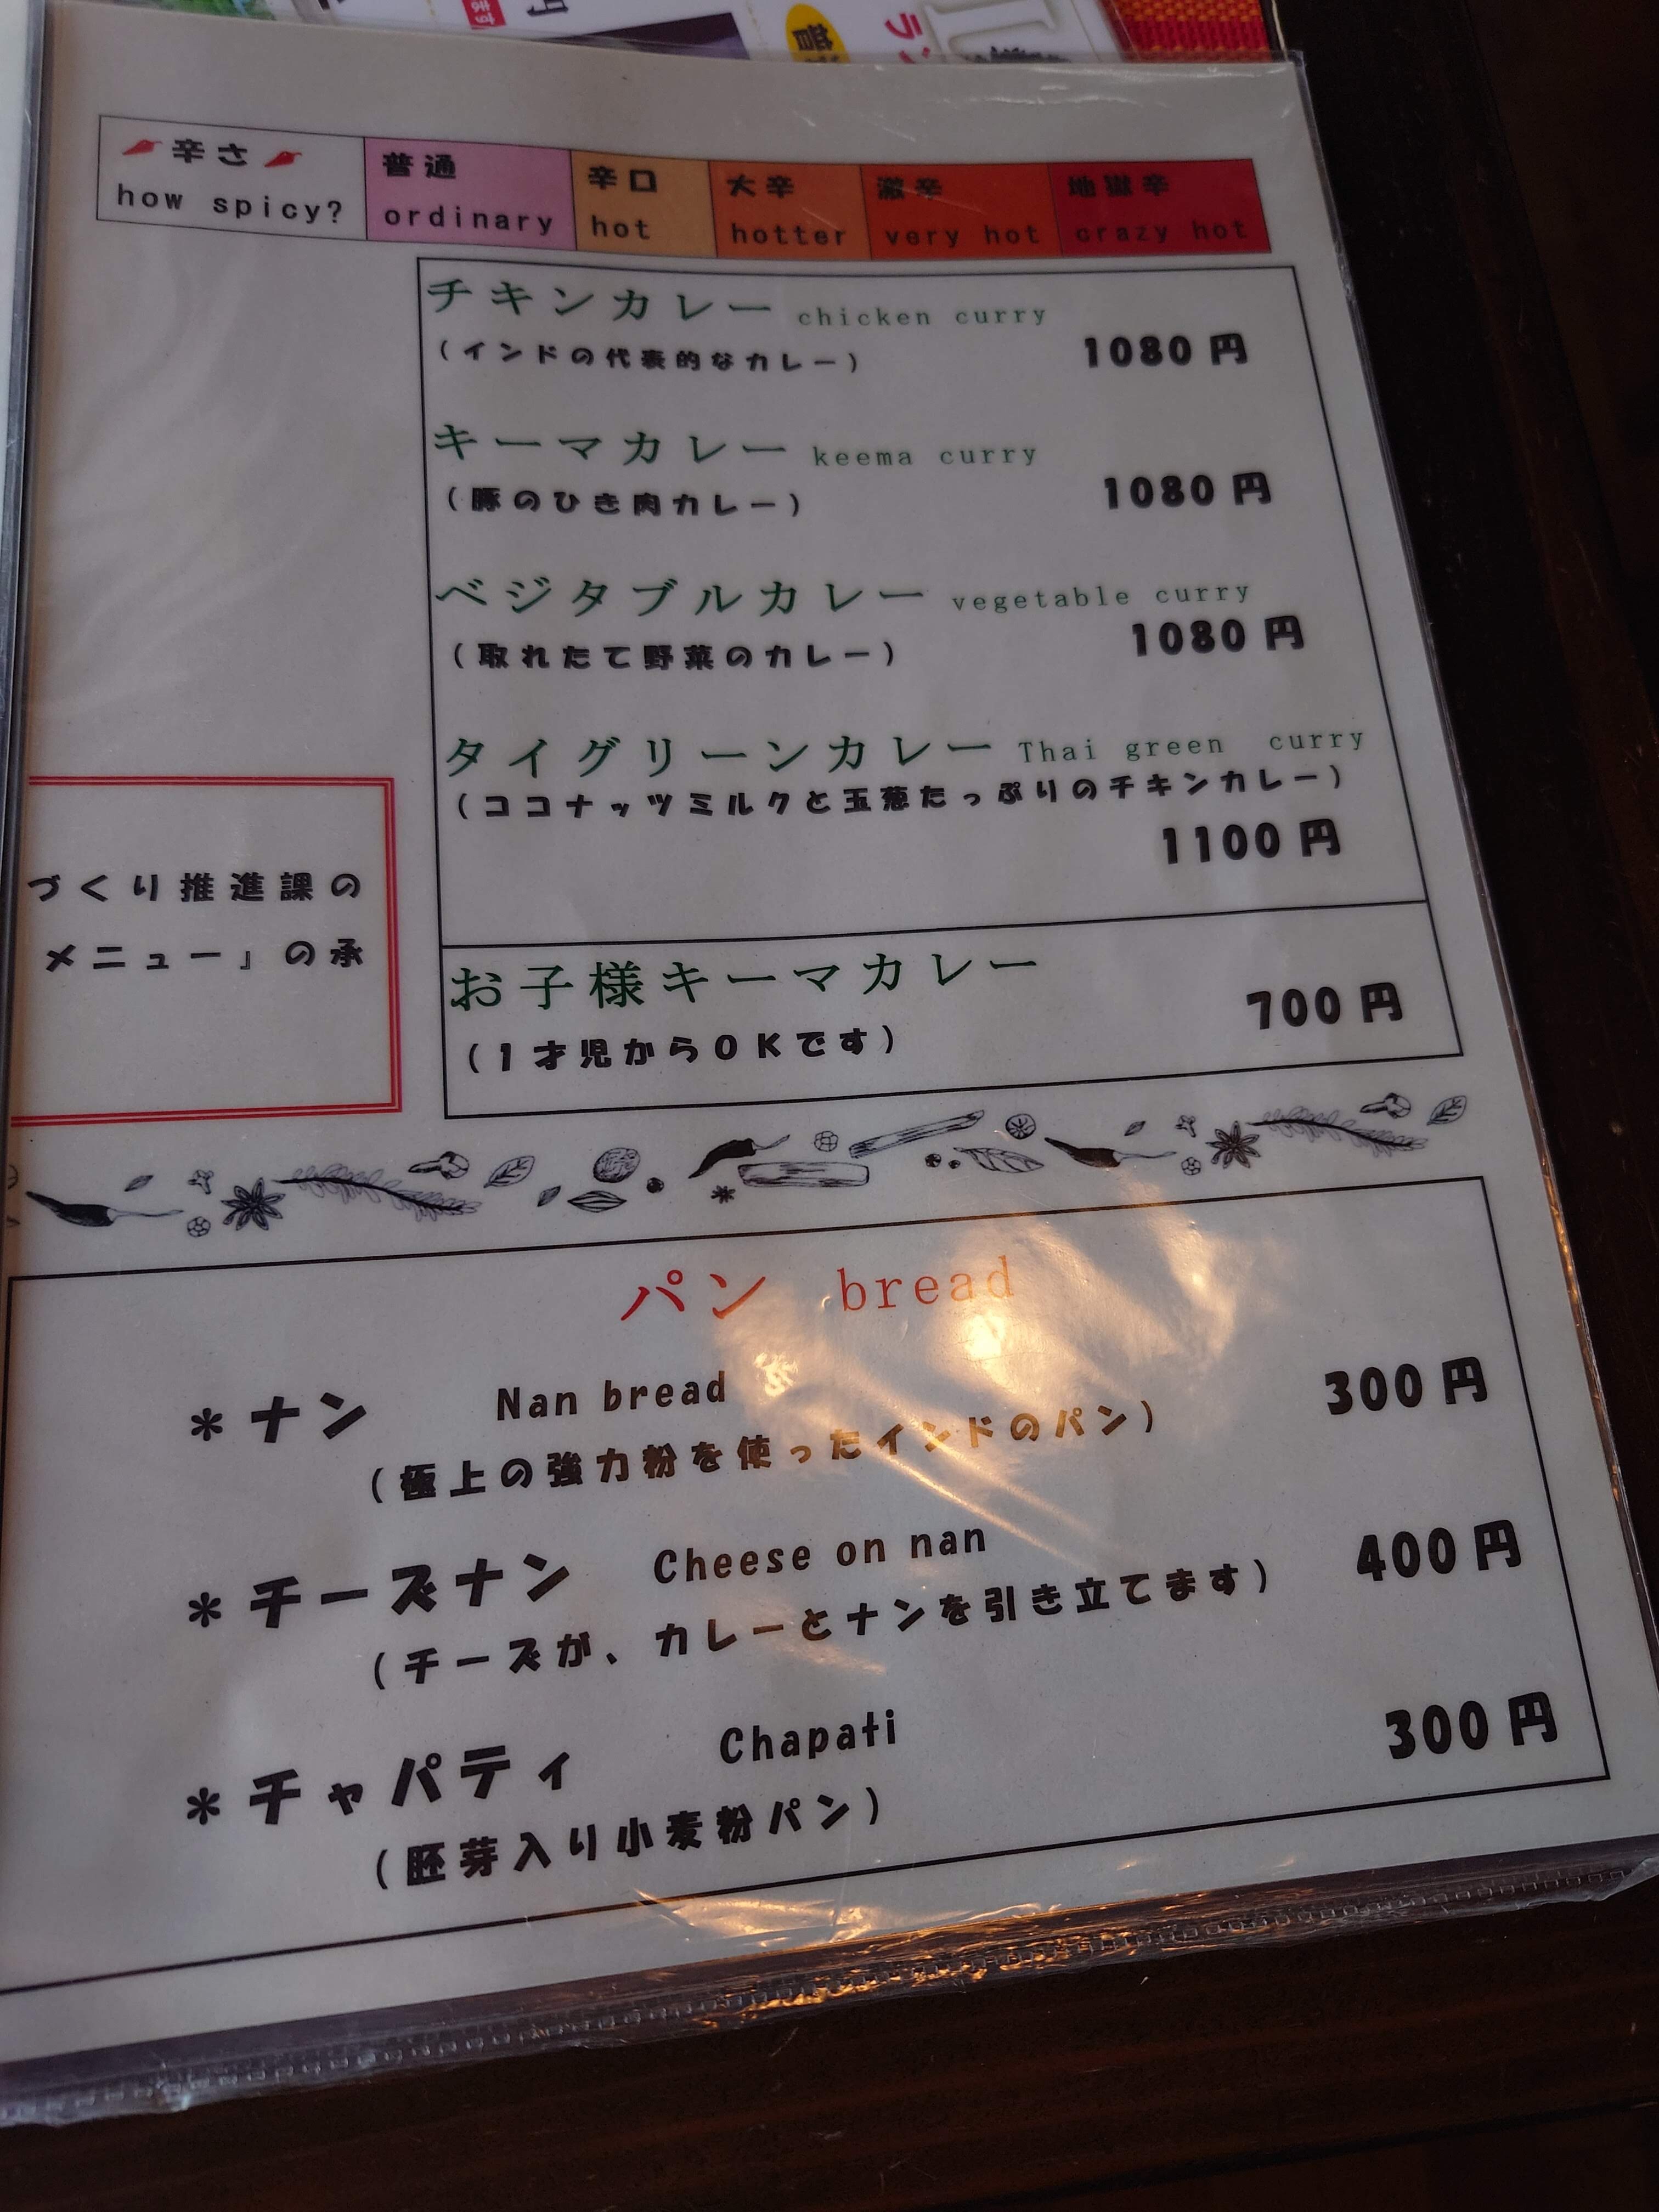 辛さ 普通 辛口 大辛 激辛 地獄辛
how spicy? ordinary hot hotter very hot crazy hot
チキンカレー chicken curry
(インドの代表的なカレー) 1080円
キーマカレー keema curry
(豚のひき肉カレー) 1080円
ベジタブルカレー vegetable curry
(取れたて野菜のカレー) 1080円
タイグリーンカレー Thai green curry
(ココナッツミルクと玉葱たっぷりのチキンカレー)
1100円
づくり推進課の
メニュー」の承
お子様キーマカレー
(1才児からOKです) 700円
パン bread
*ナン Nan bread 300円
(極上の強力粉を使ったインドのパン)
*チーズナン Cheese on nan 400円
(チーズが、カレーとナンを引き立てます)
*チャパティ Chapati 300円
(胚芽入り小麦粉パン)